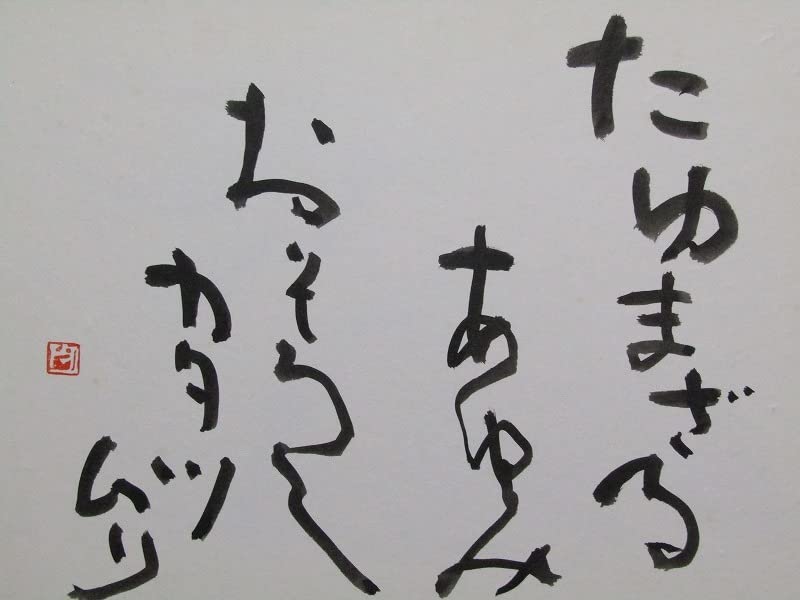 たゆまざる
あゆみ
おそろし
カタツムリ